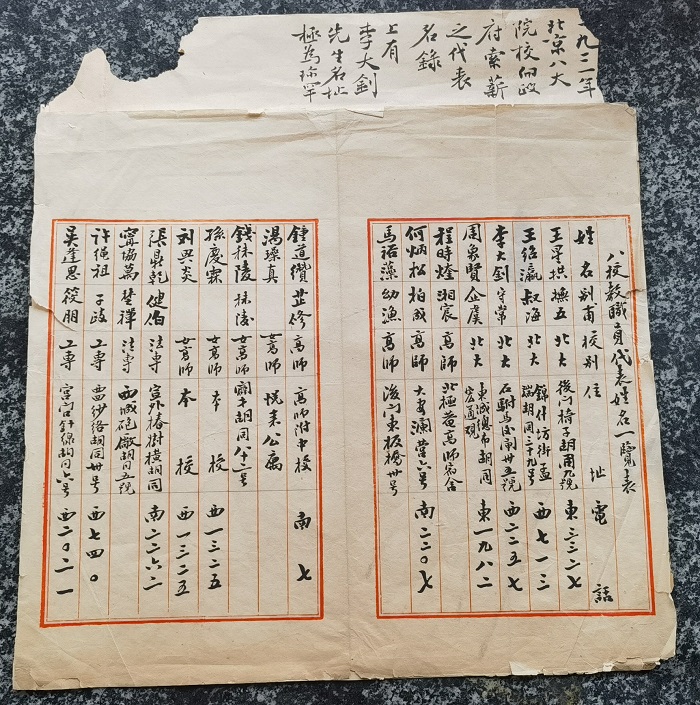 一九二一年
北京八大
院校向政
府索薪
之代表
名錄
上有
李大釗
先生名址
極為珍罕
八校教職員代表姓名一覽表
姓名 別甫 校別 住址 電話
王星拱 撫五 北大 後門椅子胡同九號 東三三二七
王紹瀛 叔海 北大 錦什坊街孟端胡同三十九號 西七一三
李大釗 守常 北大 石駙馬後閘卅五號 西二二五七
周象賢 企虞 北大 東城總布胡同宏通觀 東一九八二
程時煃 湘宸 高師 北極菴高師宿舍
何炳松 柏成 高師 大安瀾營六號 南二二〇七
馬裕藻 幼漁 高師 後門東板橋卅號
鍾道纘 芷修 高師 高師附中校 南七
湯璪真 女高師 悅來公寓
錢秣陵 秣陵 女高師 胡同八十二號
孫慶霖 女高師 本校 西一三二五
刘興炎 女高師 本校 西一三二五
張鼎乾 健伯 法專 宣外椿樹橫胡同 南二二六二
甯協萬 楚禪 法專 西城砲廠胡同五號
许绳祖 子政 工專 西斜街胡同卅號 西七四〇
吳蓬思 筱朋 工專 宮門口針線胡同六号 西二〇二一